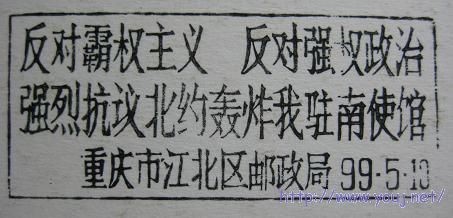 反对霸权主义 反对强权政治
强烈抗议北约轰炸我驻南使馆
重庆市江北区邮政局 99·5·10
http://www.youj.net/